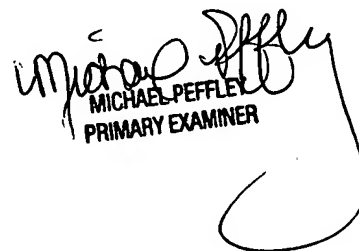 Michael Peffley
MICHAEL PEFFLEY
PRIMARY EXAMINER